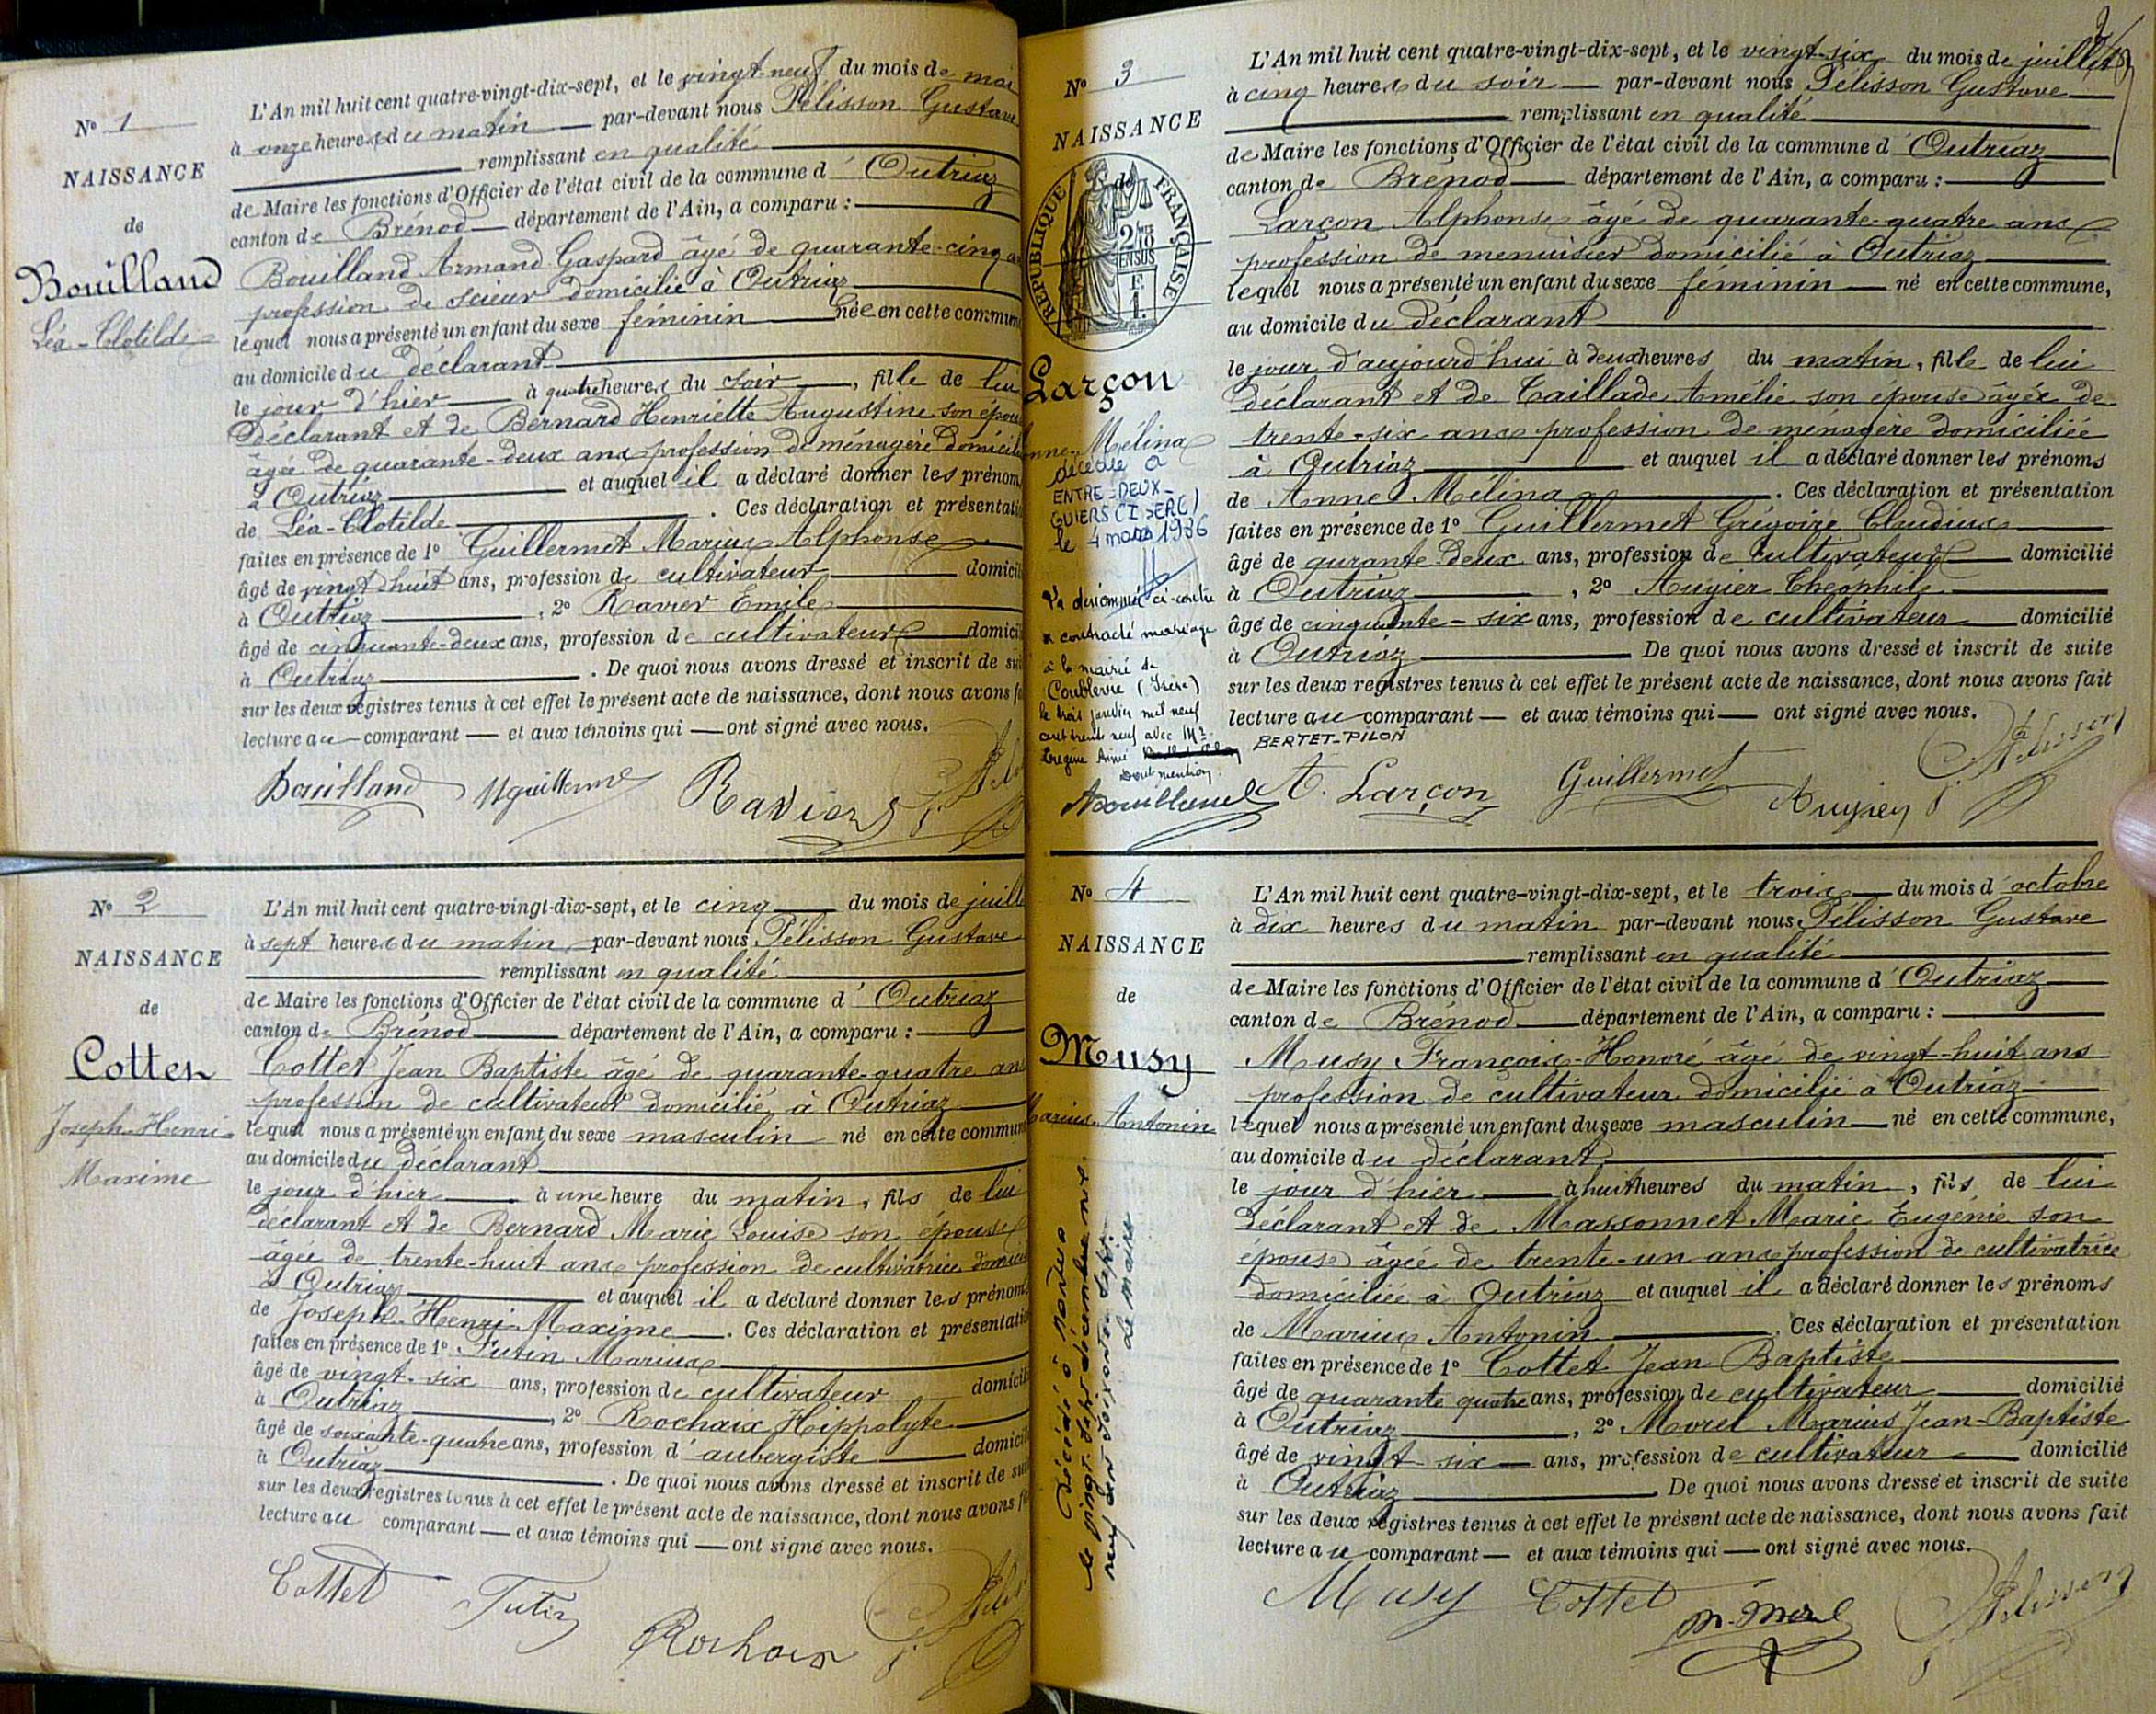 N° 1
NAISSANCE
de
Bouilland
Léa-Clotilde
L'An mil huit cent quatre-vingt-dix-sept, et le vingt-neuf du mois de mai
à onze heures du matin par-devant nous Pélisson Gustave
remplissant en qualité
de Maire les fonctions d'Officier de l'état civil de la commune d' Outriaz
canton de Brénod département de l'Ain, a comparu :
Bouilland Armand Gaspard âgé de quarante-cinq
profession de scieur domicilié à Outriaz
lequel nous a présenté un enfant du sexe féminin née en cette commune
au domicile du déclarant
le jour d'hier à quatre heures du soir, fille de lui
déclarant et de Bernard Henriette Augustine son épou
âgée de quarante-deux ans profession de ménagère domicili
à Outriaz et auquel il a déclaré donner les prénom
de Léa-Clotilde . Ces déclaration et présentati
faites en présence de 1° Guillermet Marius Alphonse
âgé de vingt-huit ans, profession de cultivateur domicil
à Outriaz , 2° Ravier Emile
âgé de cinquante-deux ans, profession de cultivateur domicil
à Outriaz . De quoi nous avons dressé et inscrit de sui
sur les deux registres tenus à cet effet le présent acte de naissance, dont nous avons f
lecture au comparant et aux témoins qui ont signé avec nous.
Bouilland Mguillerme Ravier
N° 2
NAISSANCE
de
Cottet
Joseph-Henri
Maxime
L'An mil huit cent quatre-vingt-dix-sept, et le cinq du mois de juill
à sept heures du matin par-devant nous Pélisson Gustave
remplissant en qualité
de Maire les fonctions d'Officier de l'état civil de la commune d' Outriaz
canton de Brénod département de l'Ain, a comparu :
Cottet Jean Baptiste âgé de quarante-quatre ans
profession de cultivateur domicilié à Outriaz
lequel nous a présenté un enfant du sexe masculin né en cette commun
au domicile du déclarant
le jour d'hier à une heure du matin, fils de lui
déclarant et de Bernard Marie Louise son épouse
âgée de trente-huit ans profession de cultivatrice domici
à Outriaz et auquel il a déclaré donner les prénoms
de Joseph-Henri-Maxime . Ces déclaration et présentati
faites en présence de 1° Tutin Marius
âgé de vingt-six ans, profession de cultivateur domicili
à Outriaz , 2° Rochaix Hippolyte
âgé de soixante-quatre ans, profession d'aubergiste domicil
à Outriaz . De quoi nous avons dressé et inscrit de sui
sur les deux registres tenus à cet effet le présent acte de naissance, dont nous avons f
lecture au comparant et aux témoins qui ont signé avec nous.
Cottet Tutin Rochaix
N° 3
NAISSANCE
de
REPUBLIQUE FRANÇAISE
2/10 EN SUS
F.
1.
Larçon
nne-Mélina
décédée à
ENTRE-DEUX-
GUIERS (ISERE)
le 4 mars 1986
La dénommée ci-contre
a contracté mariage
à la mairie de
Coublevie (Isère)
le trois janvier mil neuf
cent trente neuf avec Mr
Eugène Aimé
BERTET-PILON
Dont mention.
L'An mil huit cent quatre-vingt-dix-sept, et le vingt-six du mois de juillet
à cinq heures du soir par-devant nous Pélisson Gustave
remplissant en qualité
de Maire les fonctions d'Officier de l'état civil de la commune d' Outriaz
canton de Brénod département de l'Ain, a comparu :
Larçon Alphonse âgé de quarante-quatre ans
profession de menuisier domicilié à Outriaz
lequel nous a présenté un enfant du sexe féminin né en cette commune,
au domicile du déclarant
le jour d'aujourd'hui à deux heures du matin, fille de lui
déclarant et de Taillade Amélie son épouse âgée de
trente-six ans profession de ménagère domiciliée
à Outriaz et auquel il a déclaré donner les prénoms
de Anne Mélina . Ces déclaration et présentation
faites en présence de 1° Guillermet Grégoire Claudius
âgé de qurante deux ans, profession de cultivateur domicilié
à Outriaz , 2° Augier Théophile
âgé de cinquante-six ans, profession de cultivateur domicilié
à Outriaz De quoi nous avons dressé et inscrit de suite
sur les deux registres tenus à cet effet le présent acte de naissance, dont nous avons fait
lecture au comparant et aux témoins qui ont signé avec nous.
A. Larçon Guillermet Augier Pelisson
N° 4
NAISSANCE
de
Musy
Marius-Antonin
Décédé à Nantua
le vingt-sept décembre mil
neuf cent soixante sept.
de maire
L'An mil huit cent quatre-vingt-dix-sept, et le trois du mois d'octobre
à dix heures du matin par-devant nous Pélisson Gustave
remplissant en qualité
de Maire les fonctions d'Officier de l'état civil de la commune d' Outriaz
canton de Brénod département de l'Ain, a comparu :
Musy François-Honoré âgé de vingt-huit ans
profession de cultivateur domicilié à Outriaz
lequel nous a présenté un enfant du sexe masculin né en cette commune,
au domicile du déclarant
le jour d'hier à huit heures du matin, fils de lui
déclarant et de Massonnet Marie Eugénie son
épouse âgée de trente-un ans profession de cultivatrice
domiciliée à Outriaz et auquel il a déclaré donner les prénoms
de Marius Antonin . Ces déclaration et présentation
faites en présence de 1° Cottet Jean Baptiste
âgé de quarante quatre ans, profession de cultivateur domicilié
à Outriaz , 2° Morel Marius Jean-Baptiste
âgé de vingt-six ans, profession de cultivateur domicilié
à Outriaz De quoi nous avons dressé et inscrit de suite
sur les deux registres tenus à cet effet le présent acte de naissance, dont nous avons fait
lecture au comparant et aux témoins qui ont signé avec nous.
Musy Cottet M. Morel Pelisson